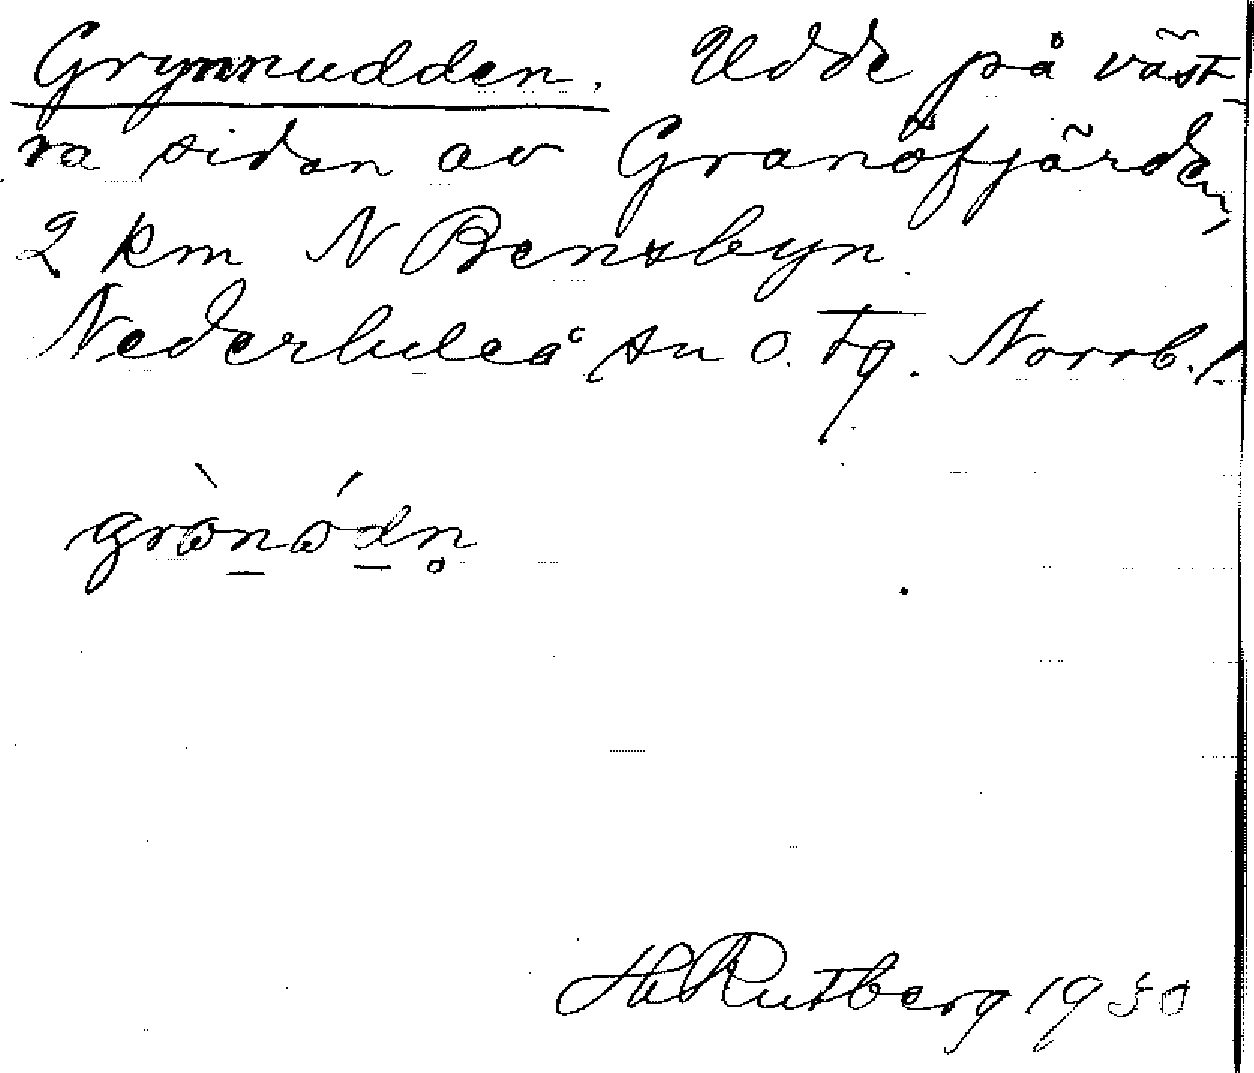 Grynnudden. Udde på väst-
ra sidan av Granöfjärden,
2 km N Bensbyn.
Nederluleå sn o. tg. Norrb. l.
Rutberg 1930